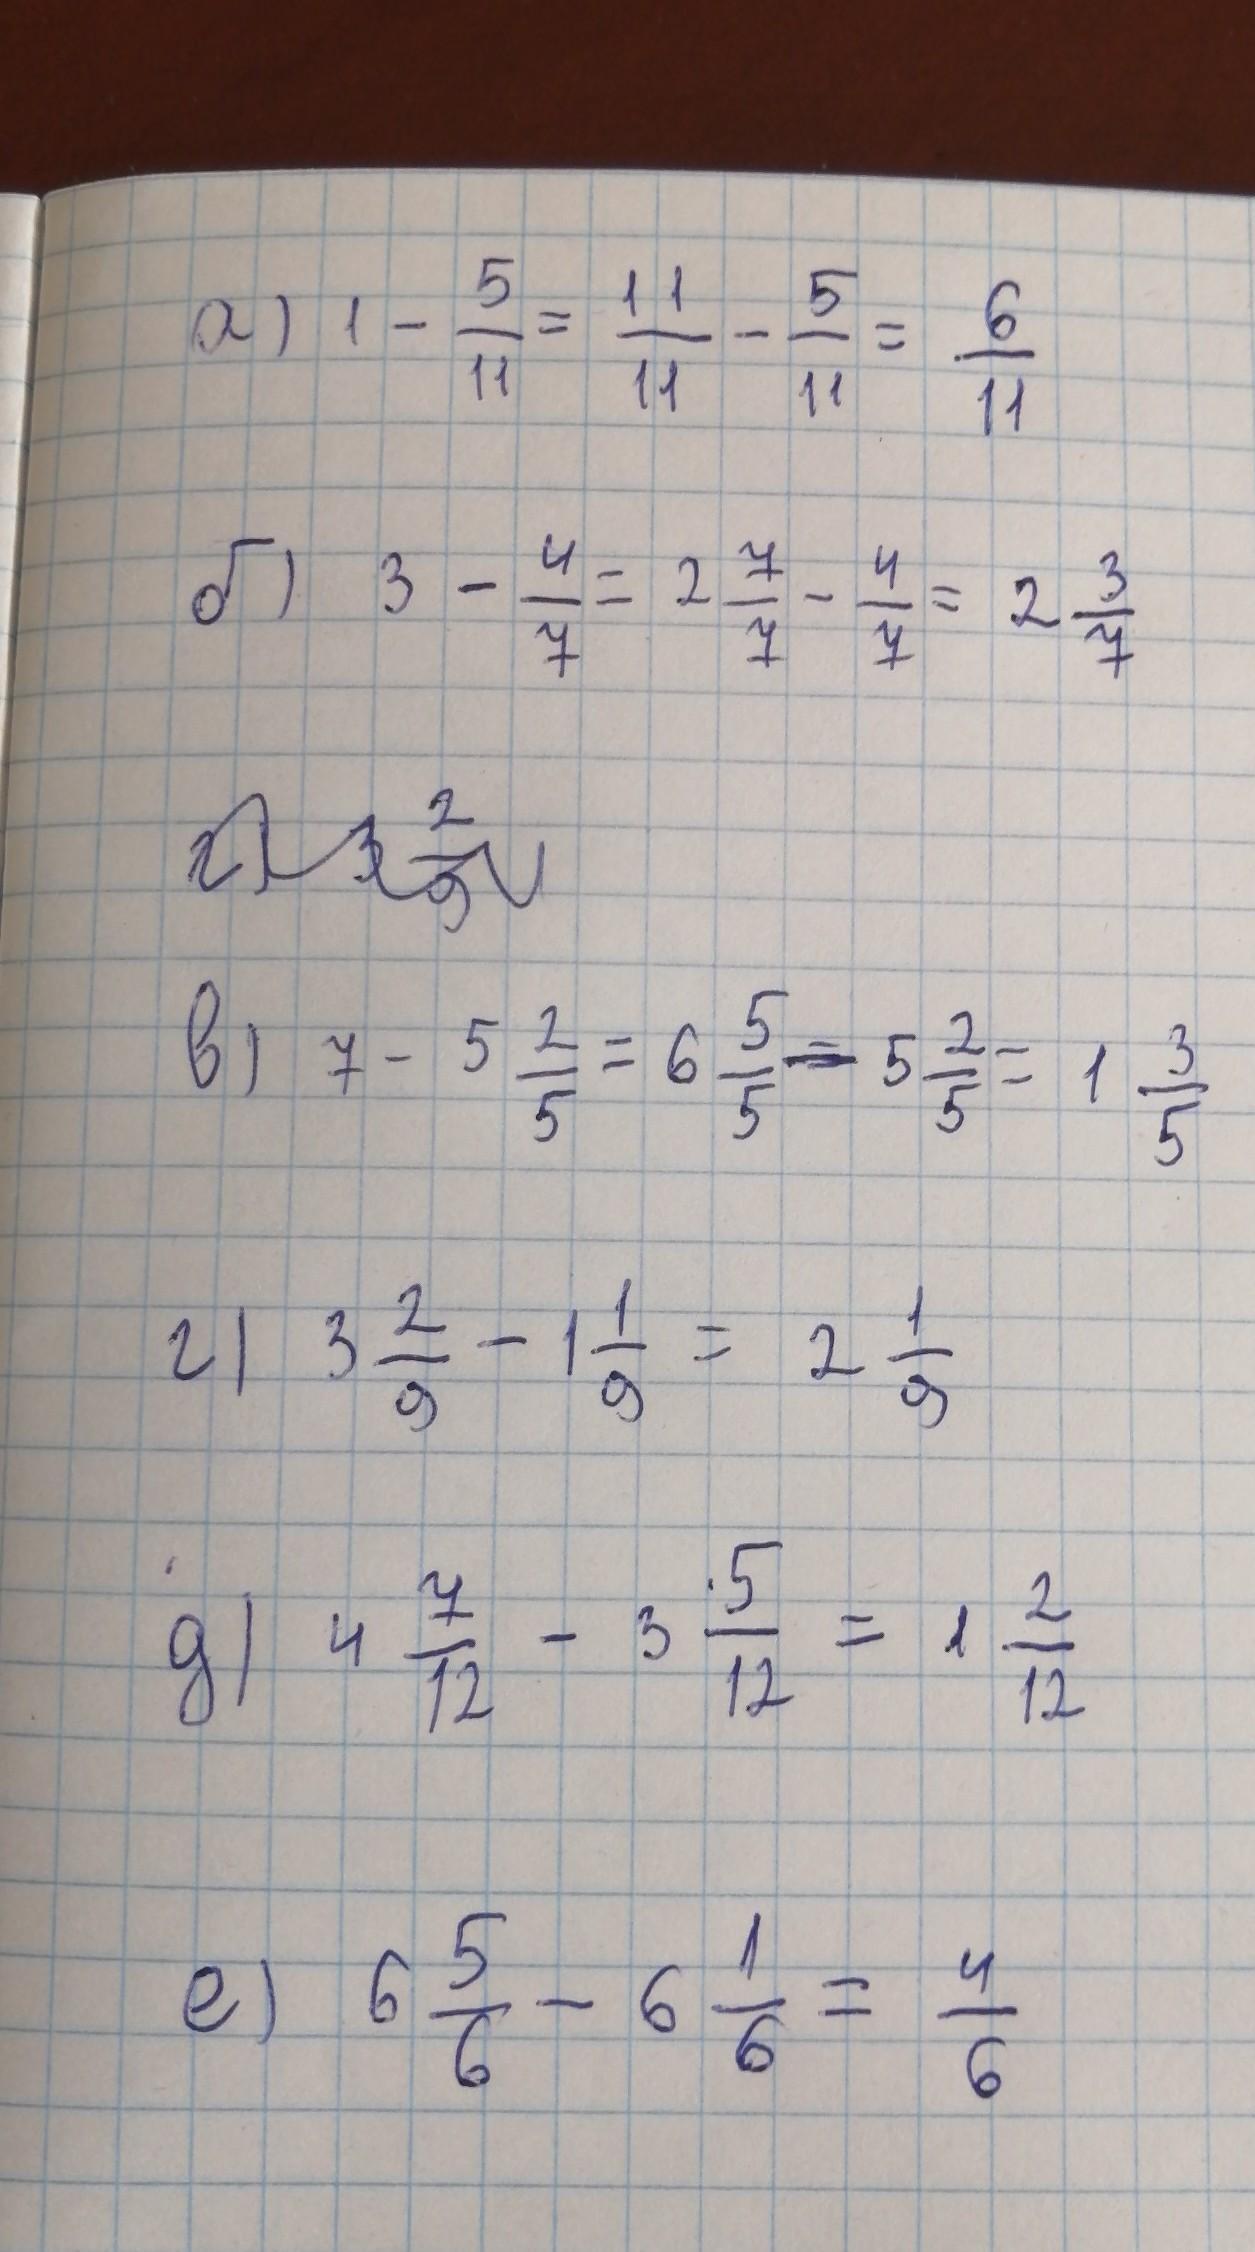 а) 1 - 5/11 = 11/11 - 5/11 = 6/11
б) 3 - 4/7 = 2 7/7 - 4/7 = 2 3/7
г) 3 2/9
в) 7 - 5 2/5 = 6 5/5 - 5 2/5 = 1 3/5
г) 3 2/9 - 1 1/9 = 2 1/9
д) 4 7/12 - 3 5/12 = 1 2/12
е) 6 5/6 - 6 1/6 = 4/6